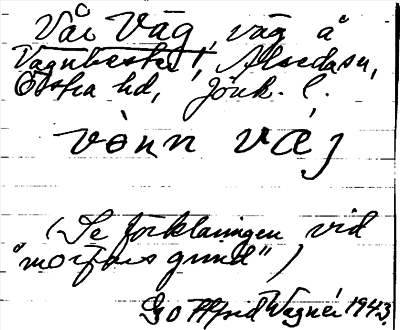 Vår Väg, väg å
Vagnhester, Alseda sn,
Östra hd, Jönk. l.
vònn væj
(Se förklaringen vid
"morfars grind")
Gottfrid Wagnér 1943.